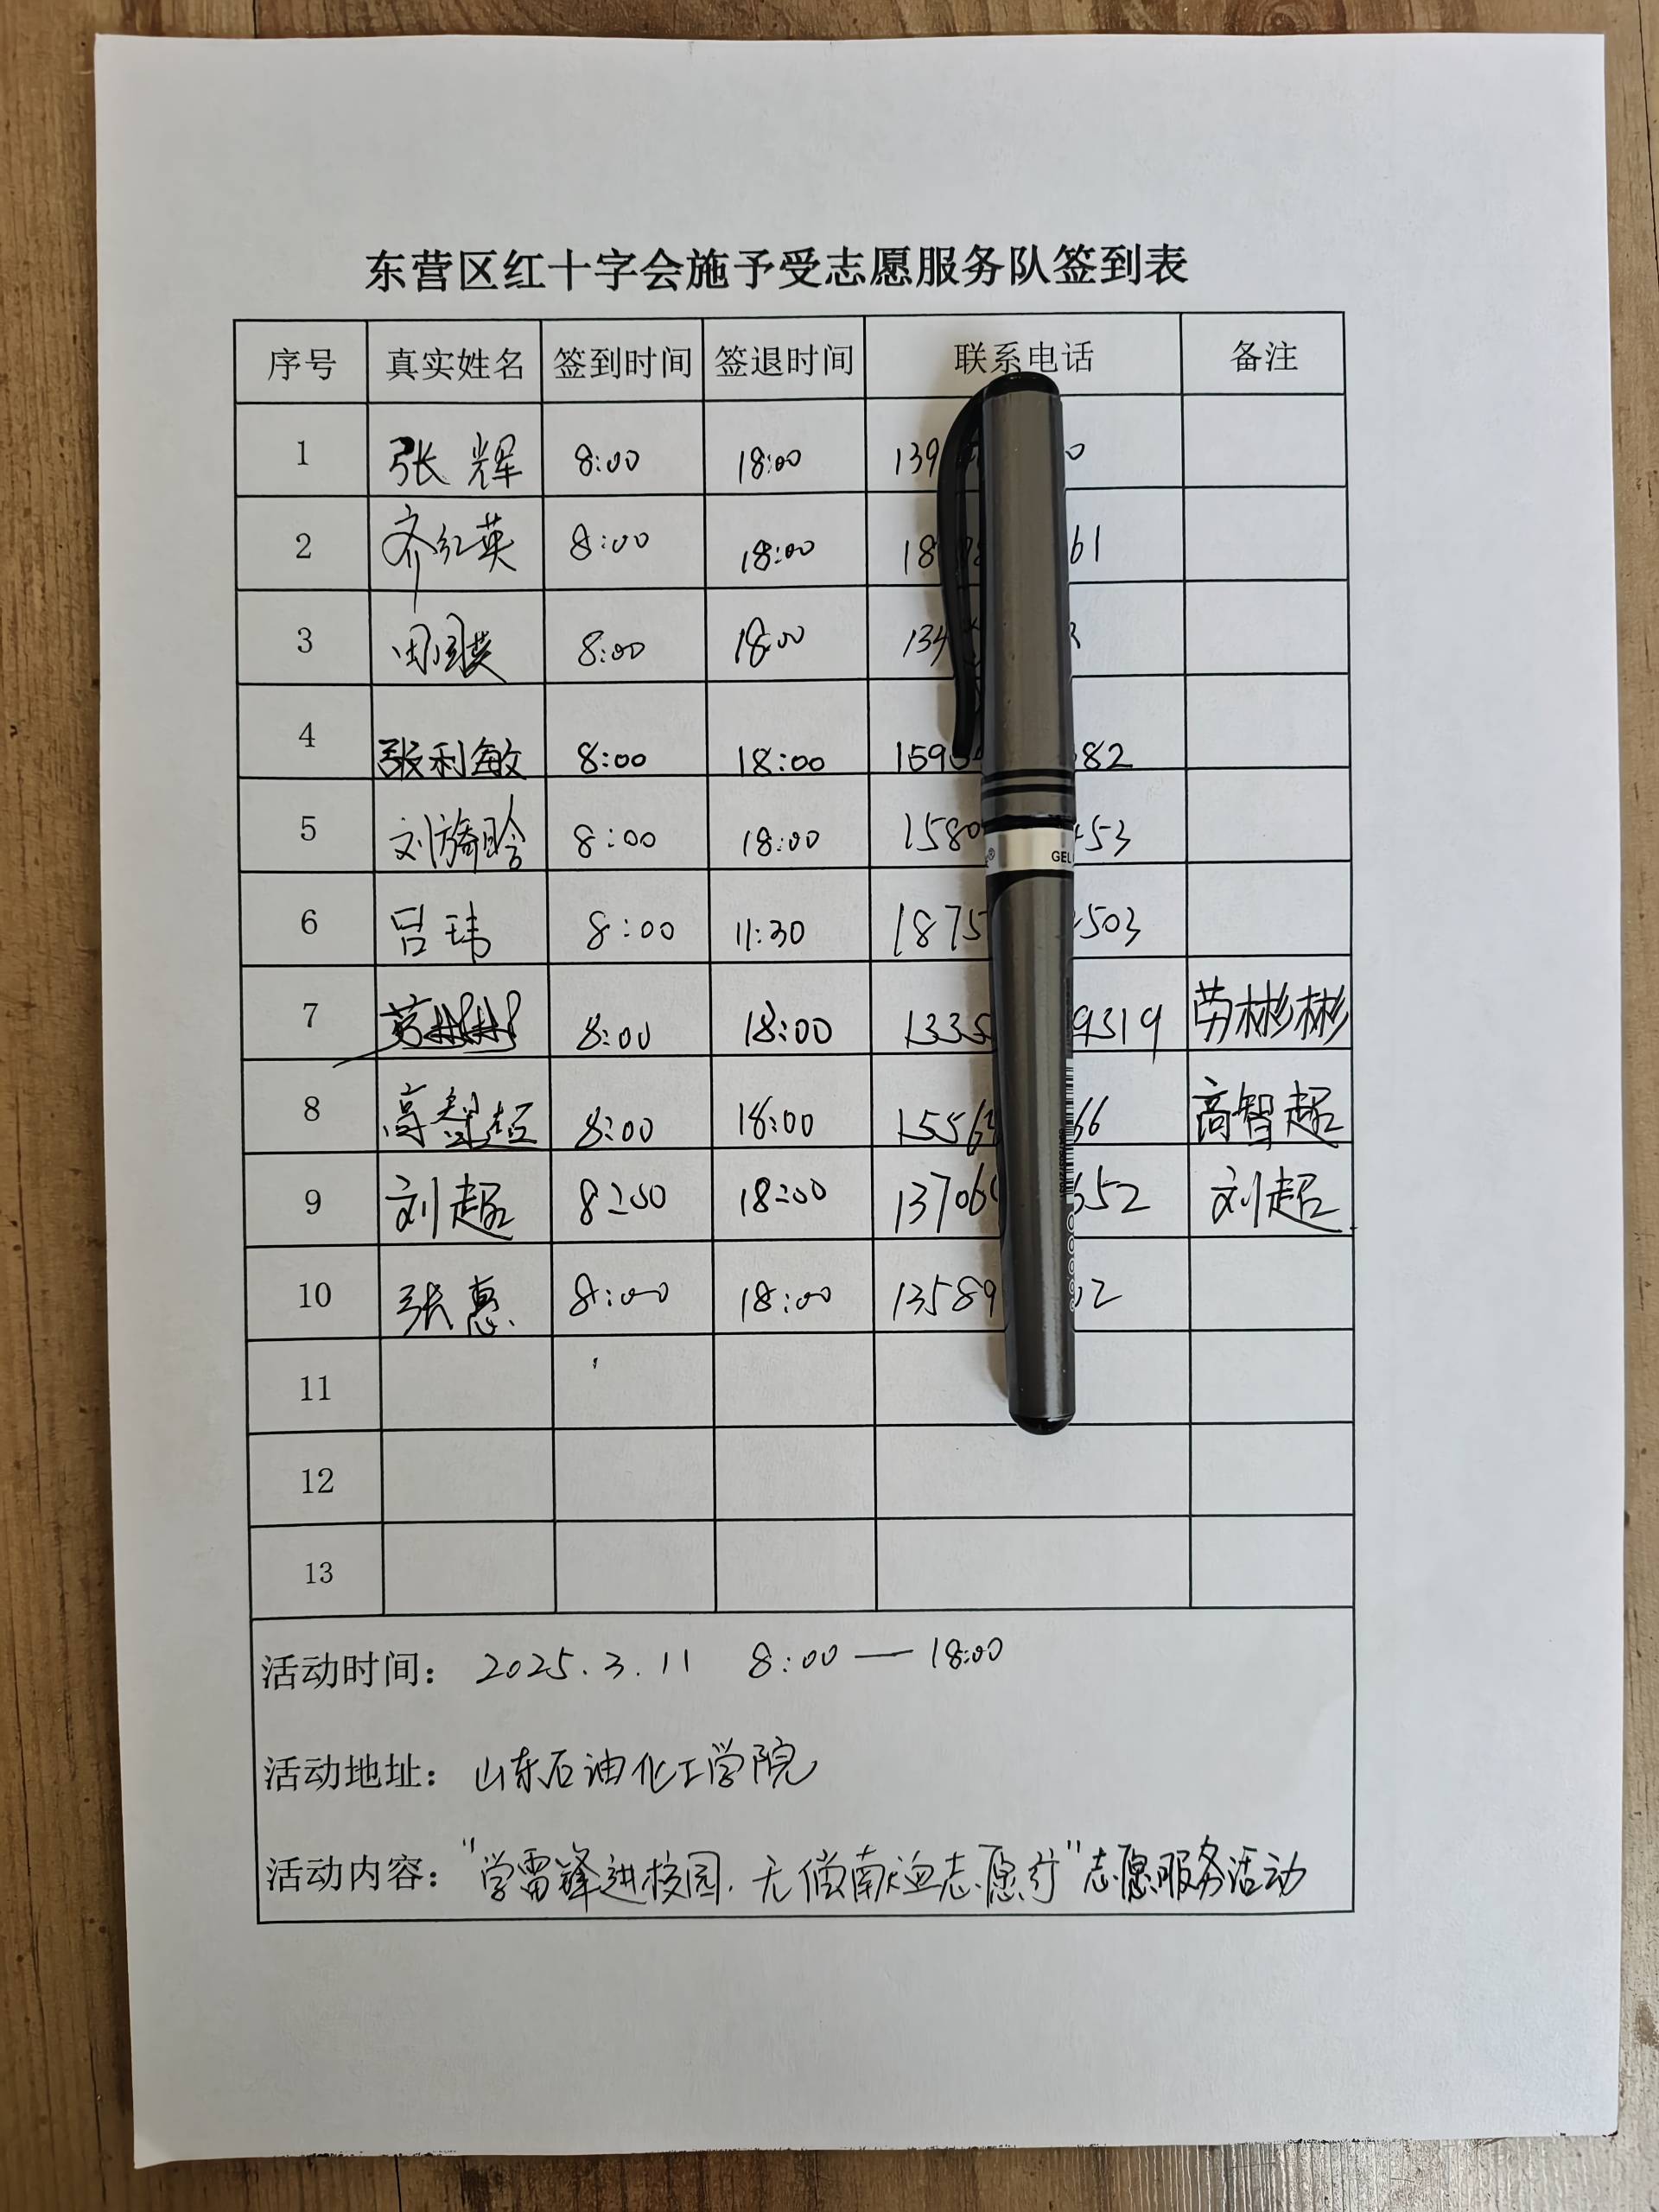 东营区红十字会施予受志愿服务队签到表
序号 真实姓名 签到时间 签退时间 联系电话 备注
1 张辉 8:00 18:00 139 0
2 齐红英 8:00 18:00 18 61
3 8:00 18:00 134
4 张利敏 8:00 18:00 159 582
5 刘旖晗 8:00 18:00 1580 53
6 吕玮 8:00 11:30 1875 503
7 8:00 18:00 1335 9319 劳彬彬
8 高智超 8:00 18:00 1556 66 高智超
9 刘超 8:00 18:00 1370 552 刘超
10 张惠 8:00 18:00 13589 02
11
12
13
GEL
活动时间: 2025.3.11 8:00—18:00
活动地址: 山东石油化工学院
活动内容: "学雷锋进校园.无偿献血志愿行"志愿服务活动